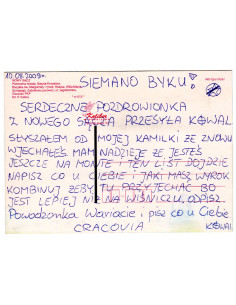 10.08.2009r.
SIEMANO BYKU!
SERDECZNE POZDROWIONKA
Z NOWEGO SĄCZA PRZESYŁA KOWAL
SŁYSZAŁEM OD MOJEJ KAMILKI ZE ZNOWU
WJECHAŁEŚ MAM NADZIEJĘ ZE JESTEŚ
JESZCZE NA MONTE I TEN LIST DOJDZIE
NAPISZ CO U CIEBIE I JAKI MASZ WYROK
KOMBINUJ ZEBY TU PRZYJECHAĆ BO
JEST LEPIEJ NIŻ NA WIŚNICZU. ODPISZ
Powodzonka Wariacie i pisz co u Ciebie
CRACOVIA KOWAL